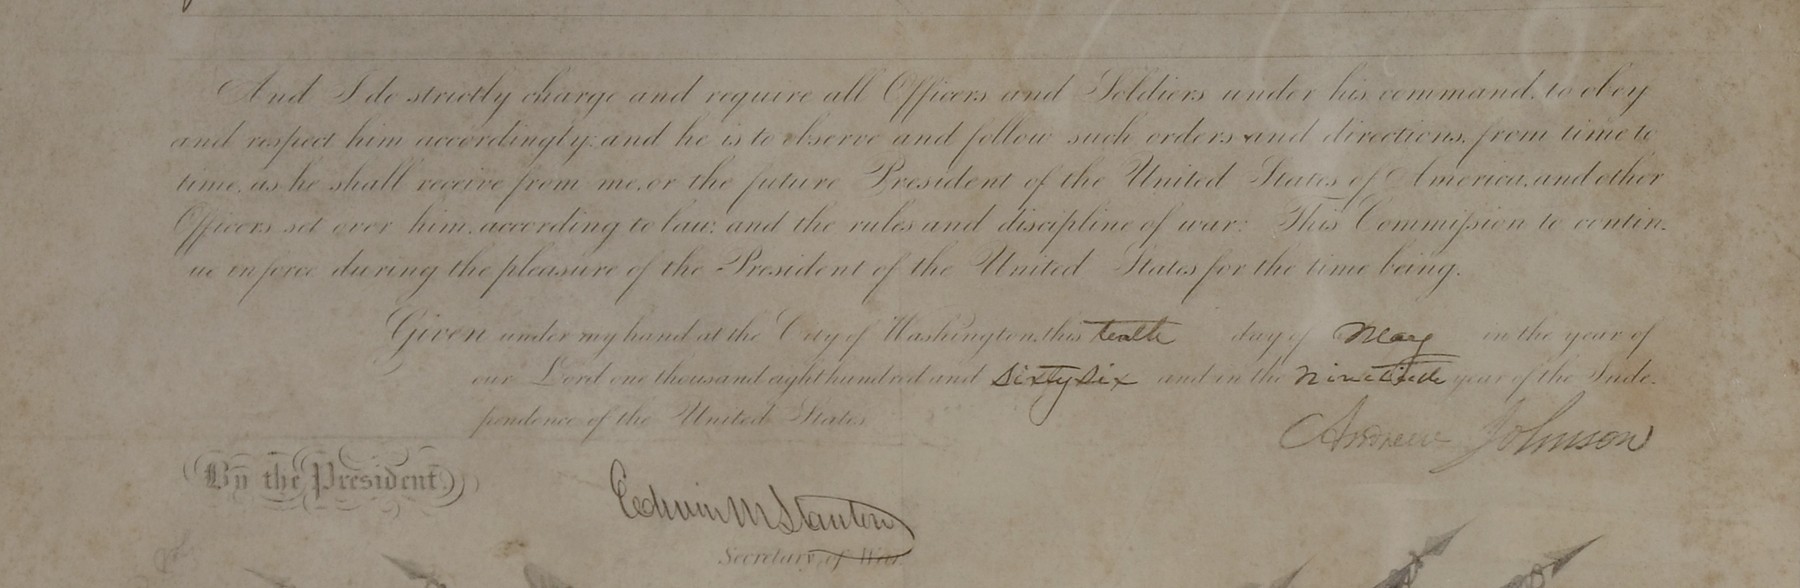 And I do strictly charge and require all Officers and Soldiers under his command, to obey
and respect him accordingly: and he is to observe and follow such orders and directions, from time to
time, as he shall receive from me, or the future President of the United States of America, and other
Officers set over him, according to law; and the rules and discipline of war. This Commission to contin-
ue in force during the pleasure of the President of the United States for the time being.
Given under my hand at the City of Washington, this tenth day of May in the year of
our Lord one thousand eight hundred and sixty six and in the ninetieth year of the Inde-
pendence of the United States.
Andrew Johnson
By the President,
Edwin M Stanton
Secretary of War.